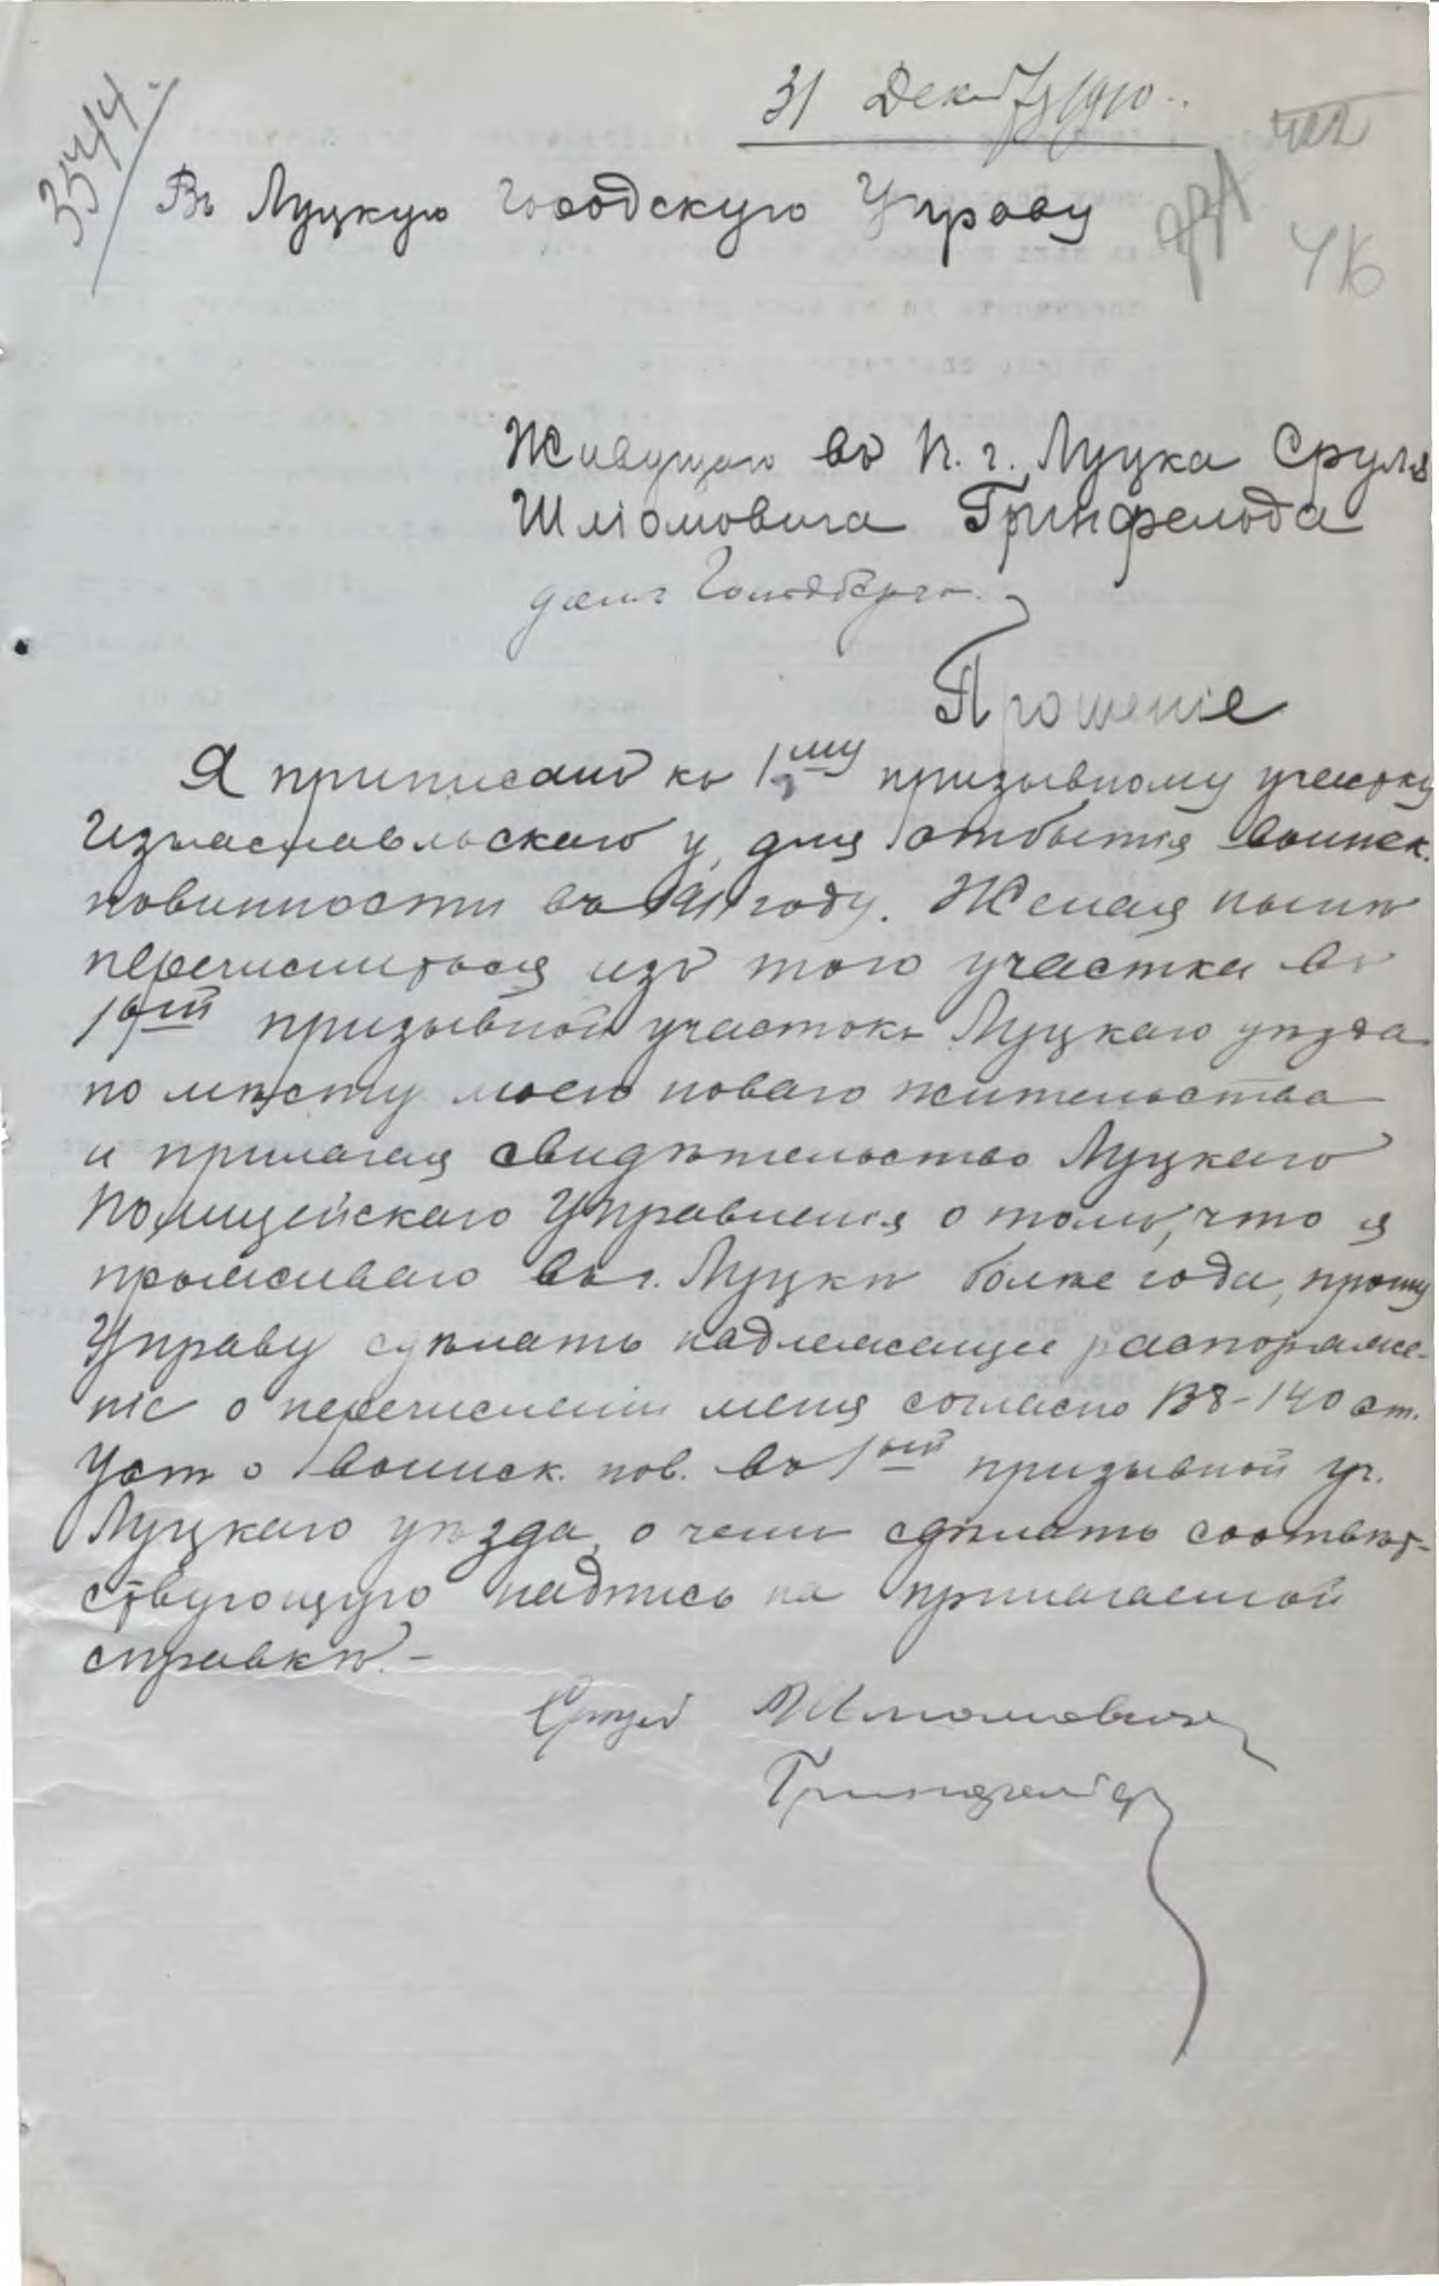 31 Декабря 1910
3544
Въ Луцкую Городскую Управу
46
Живущаго въ П. г. Луцка Сруля
Шліомовича Гринфельда
домъ Гольдберга.
Прошеніе
Я приписанъ къ 1му призывному участку
Изъяславльскаго у, для отбытія воинск.
повинности въ 1911 году. Желая нынѣ
перечислиться изъ того участка въ
1ый призывной участокъ Луцкаго уѣзда
по мѣсту моего новаго жительства
и прилагая свидѣтельство Луцкаго
Полицейскаго Управленія о томъ, что я
проживаю въ г. Луцкѣ болѣе года, прошу
Управу сдѣлать надлежащее распоряже-
ніе о перечисленіи меня согласно 138-140 ст.
Уст о воинск. пов. въ 1ый призывной уч.
Луцкаго уѣзда, о чемъ сдѣлать соотвѣт-
ствующую надпись на прилагаемой
справкѣ.-
Сруль Шліомовичъ
Гринфельдъ